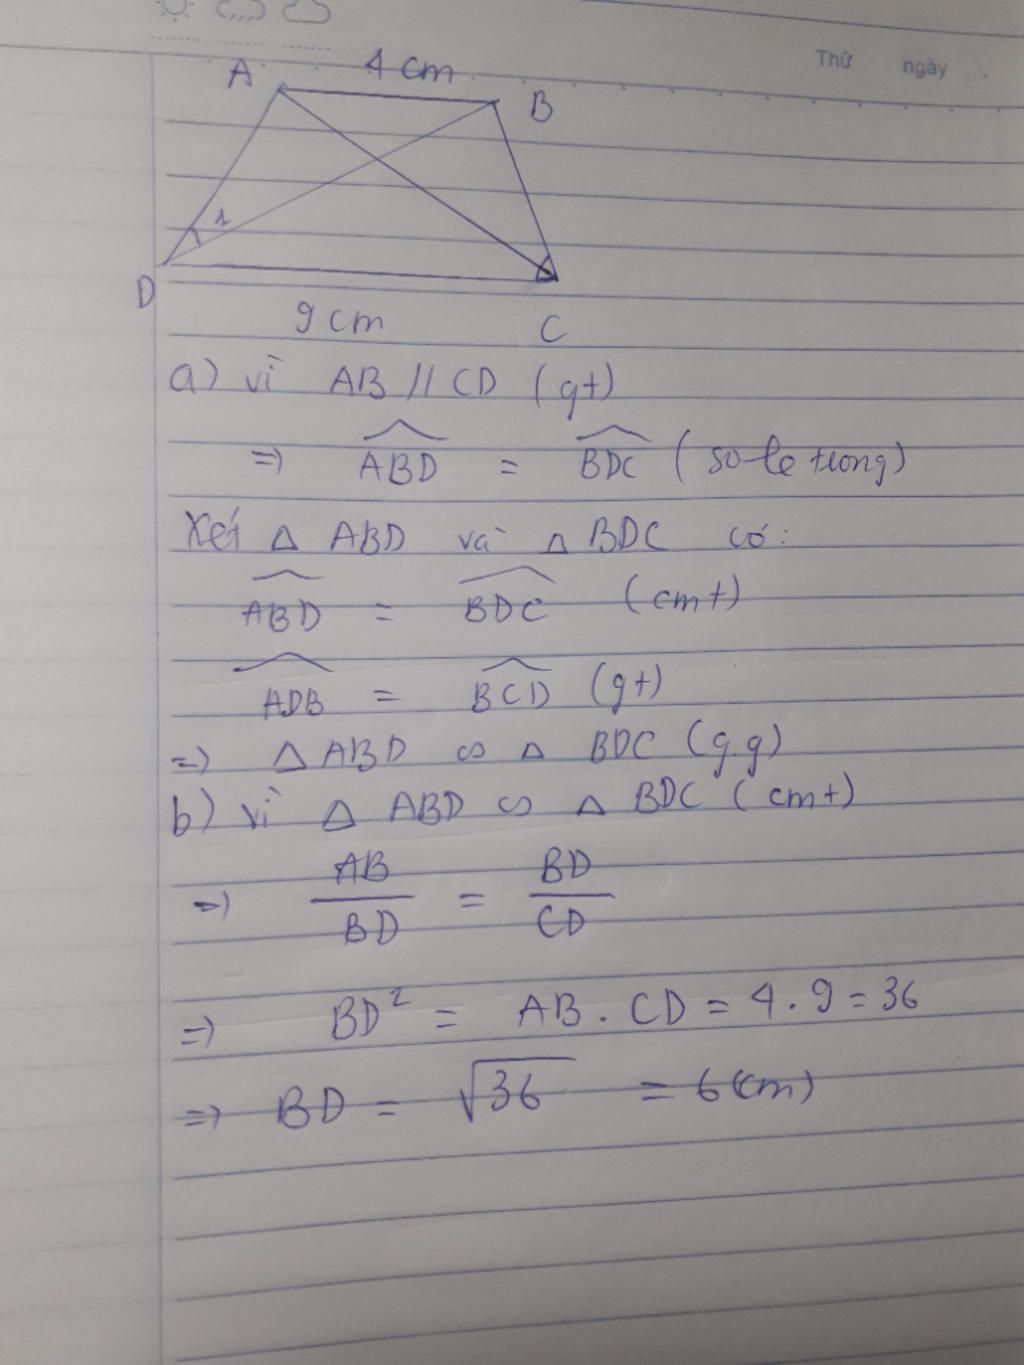 Thứ ngày
A 4 cm B
1
D
9 cm C
a) vì AB // CD (gt)
=> ABD = BDC (so le trong)
Xét Δ ABD và Δ BDC có:
ABD = BDC (cmt)
ADB = BCD (gt)
=> Δ ABD ∽ Δ BDC (g.g)
b) vì Δ ABD ∽ Δ BDC (cmt)
=> AB/BD = BD/CD
=> BD² = AB . CD = 4 . 9 = 36
=> BD = √36 = 6 (cm)